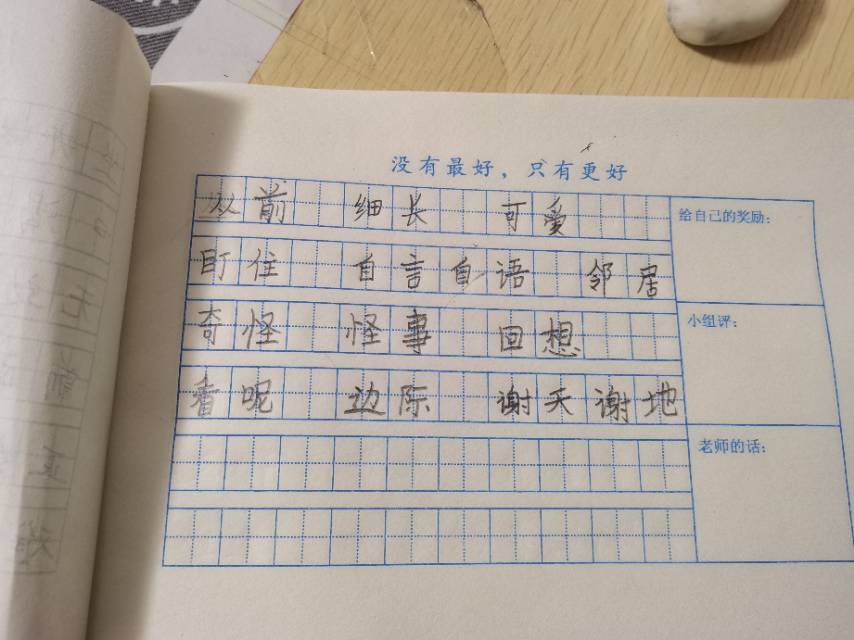 没有最好，只有更好
从前 细长 可爱
给自己的奖励：
盯住 自言自语 邻居
奇怪 怪事 回想
小组评：
看呢 边际 谢天谢地
老师的话：